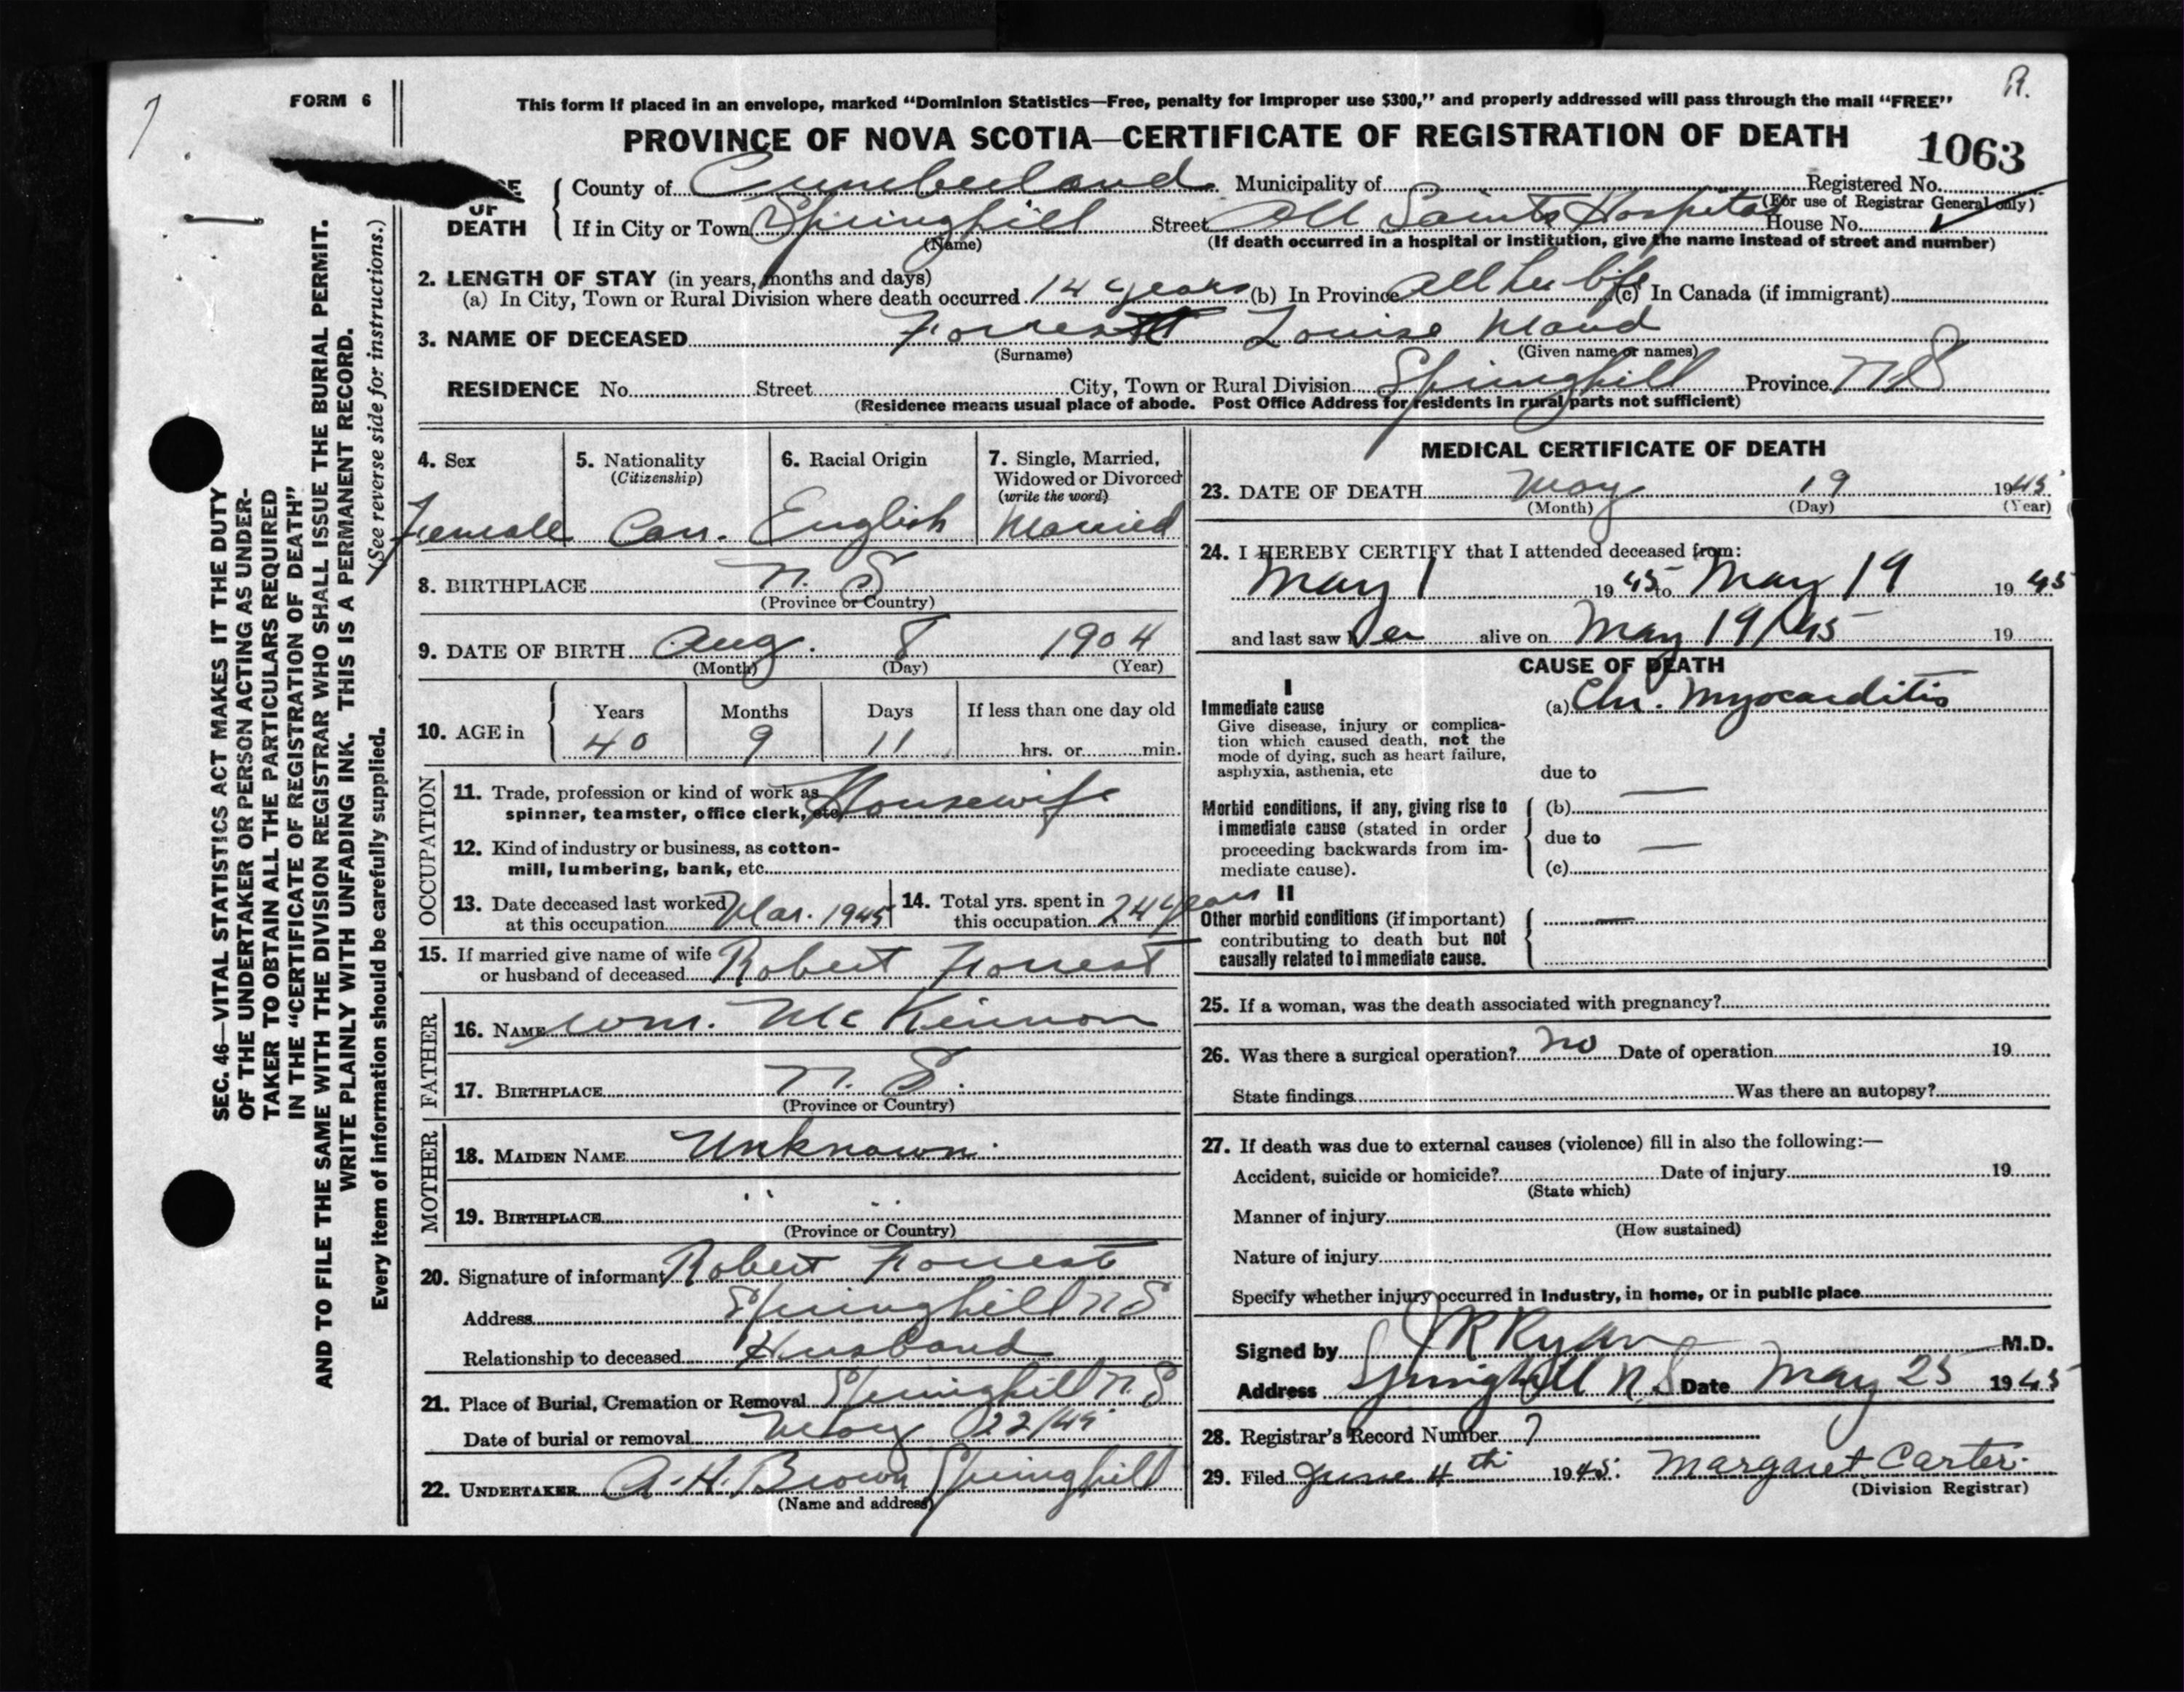 R.
7
FORM 6
This form if placed in an envelope, marked “Dominion Statistics—Free, penalty for improper use $300,” and properly addressed will pass through the mail “FREE”
PROVINCE OF NOVA SCOTIA—CERTIFICATE OF REGISTRATION OF DEATH
1063
OF DEATH
County of Cumberland Municipality of Registered No.
(For use of Registrar General only)
If in City or Town Springhill Street All Saints Hospital House No.
(Name) (If death occurred in a hospital or institution, give the name instead of street and number)
2. LENGTH OF STAY (in years, months and days)
(a) In City, Town or Rural Division where death occurred 14 years (b) In Province All her life (c) In Canada (if immigrant)
3. NAME OF DECEASED Forrest Louise Maud
(Surname) (Given name or names)
RESIDENCE No. Street City, Town or Rural Division Springhill Province N S
(Residence means usual place of abode. Post Office Address for residents in rural parts not sufficient)
4. Sex
Female
5. Nationality
(Citizenship)
Can.
6. Racial Origin
English
7. Single, Married,
Widowed or Divorced
(write the word)
Married
8. BIRTHPLACE N. S
(Province or Country)
9. DATE OF BIRTH Aug. 8 1904
(Month) (Day) (Year)
10. AGE in
Years Months Days If less than one day old
40 9 11 hrs. or min.
OCCUPATION
11. Trade, profession or kind of work as
spinner, teamster, office clerk, etc. Housewife
12. Kind of industry or business, as cotton-
mill, lumbering, bank, etc.
13. Date deceased last worked
at this occupation Mar. 1945
14. Total yrs. spent in
this occupation 24 years
15. If married give name of wife
or husband of deceased Robert Forrest
FATHER
16. NAME Wm. McKinnon
17. BIRTHPLACE N. S.
(Province or Country)
MOTHER
18. MAIDEN NAME Unknown
19. BIRTHPLACE " "
(Province or Country)
20. Signature of informant Robert Forrest
Address Springhill N S
Relationship to deceased Husband
21. Place of Burial, Cremation or Removal Springhill N. S
Date of burial or removal May 22/45
22. UNDERTAKER A. H. Brown Springhill
(Name and address)
MEDICAL CERTIFICATE OF DEATH
23. DATE OF DEATH May 19 1945
(Month) (Day) (Year)
24. I HEREBY CERTIFY that I attended deceased from:
May 1 1945 to May 19 1945
and last saw her alive on May 19/45 19
CAUSE OF DEATH
I
Immediate cause
Give disease, injury or complica-
tion which caused death, not the
mode of dying, such as heart failure,
asphyxia, asthenia, etc
(a) Chr. Myocarditis
due to —
Morbid conditions, if any, giving rise to
immediate cause (stated in order
proceeding backwards from im-
mediate cause).
(b)
due to —
(c)
II
Other morbid conditions (if important)
contributing to death but not
causally related to immediate cause.
—
25. If a woman, was the death associated with pregnancy?
26. Was there a surgical operation? No Date of operation 19
State findings Was there an autopsy?
27. If death was due to external causes (violence) fill in also the following:—
Accident, suicide or homicide? Date of injury 19
(State which)
Manner of injury
(How sustained)
Nature of injury
Specify whether injury occurred in Industry, in home, or in public place
Signed by J R Ryan M.D.
Address Springhill N. S Date May 25 1945
28. Registrar's Record Number 7
29. Filed June 4th 1945. Margaret Carter
(Division Registrar)
SEC. 46—VITAL STATISTICS ACT MAKES IT THE DUTY
OF THE UNDERTAKER OR PERSON ACTING AS UNDER-
TAKER TO OBTAIN ALL THE PARTICULARS REQUIRED
IN THE “CERTIFICATE OF REGISTRATION OF DEATH”
AND TO FILE THE SAME WITH THE DIVISION REGISTRAR WHO SHALL ISSUE THE BURIAL PERMIT.
WRITE PLAINLY WITH UNFADING INK. THIS IS A PERMANENT RECORD.
Every item of information should be carefully supplied. (See reverse side for instructions.)